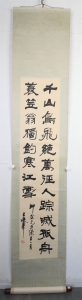 千山鳥飛絕萬徑人踪滅孤舟
蓑笠翁獨釣寒江雪